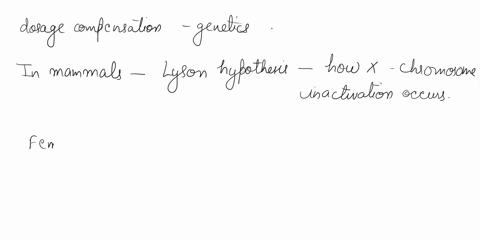 dosage compensation - genetics .
In mammals - Lyson hypothesis - how X - chromosome
inactivation occurs.
Fem